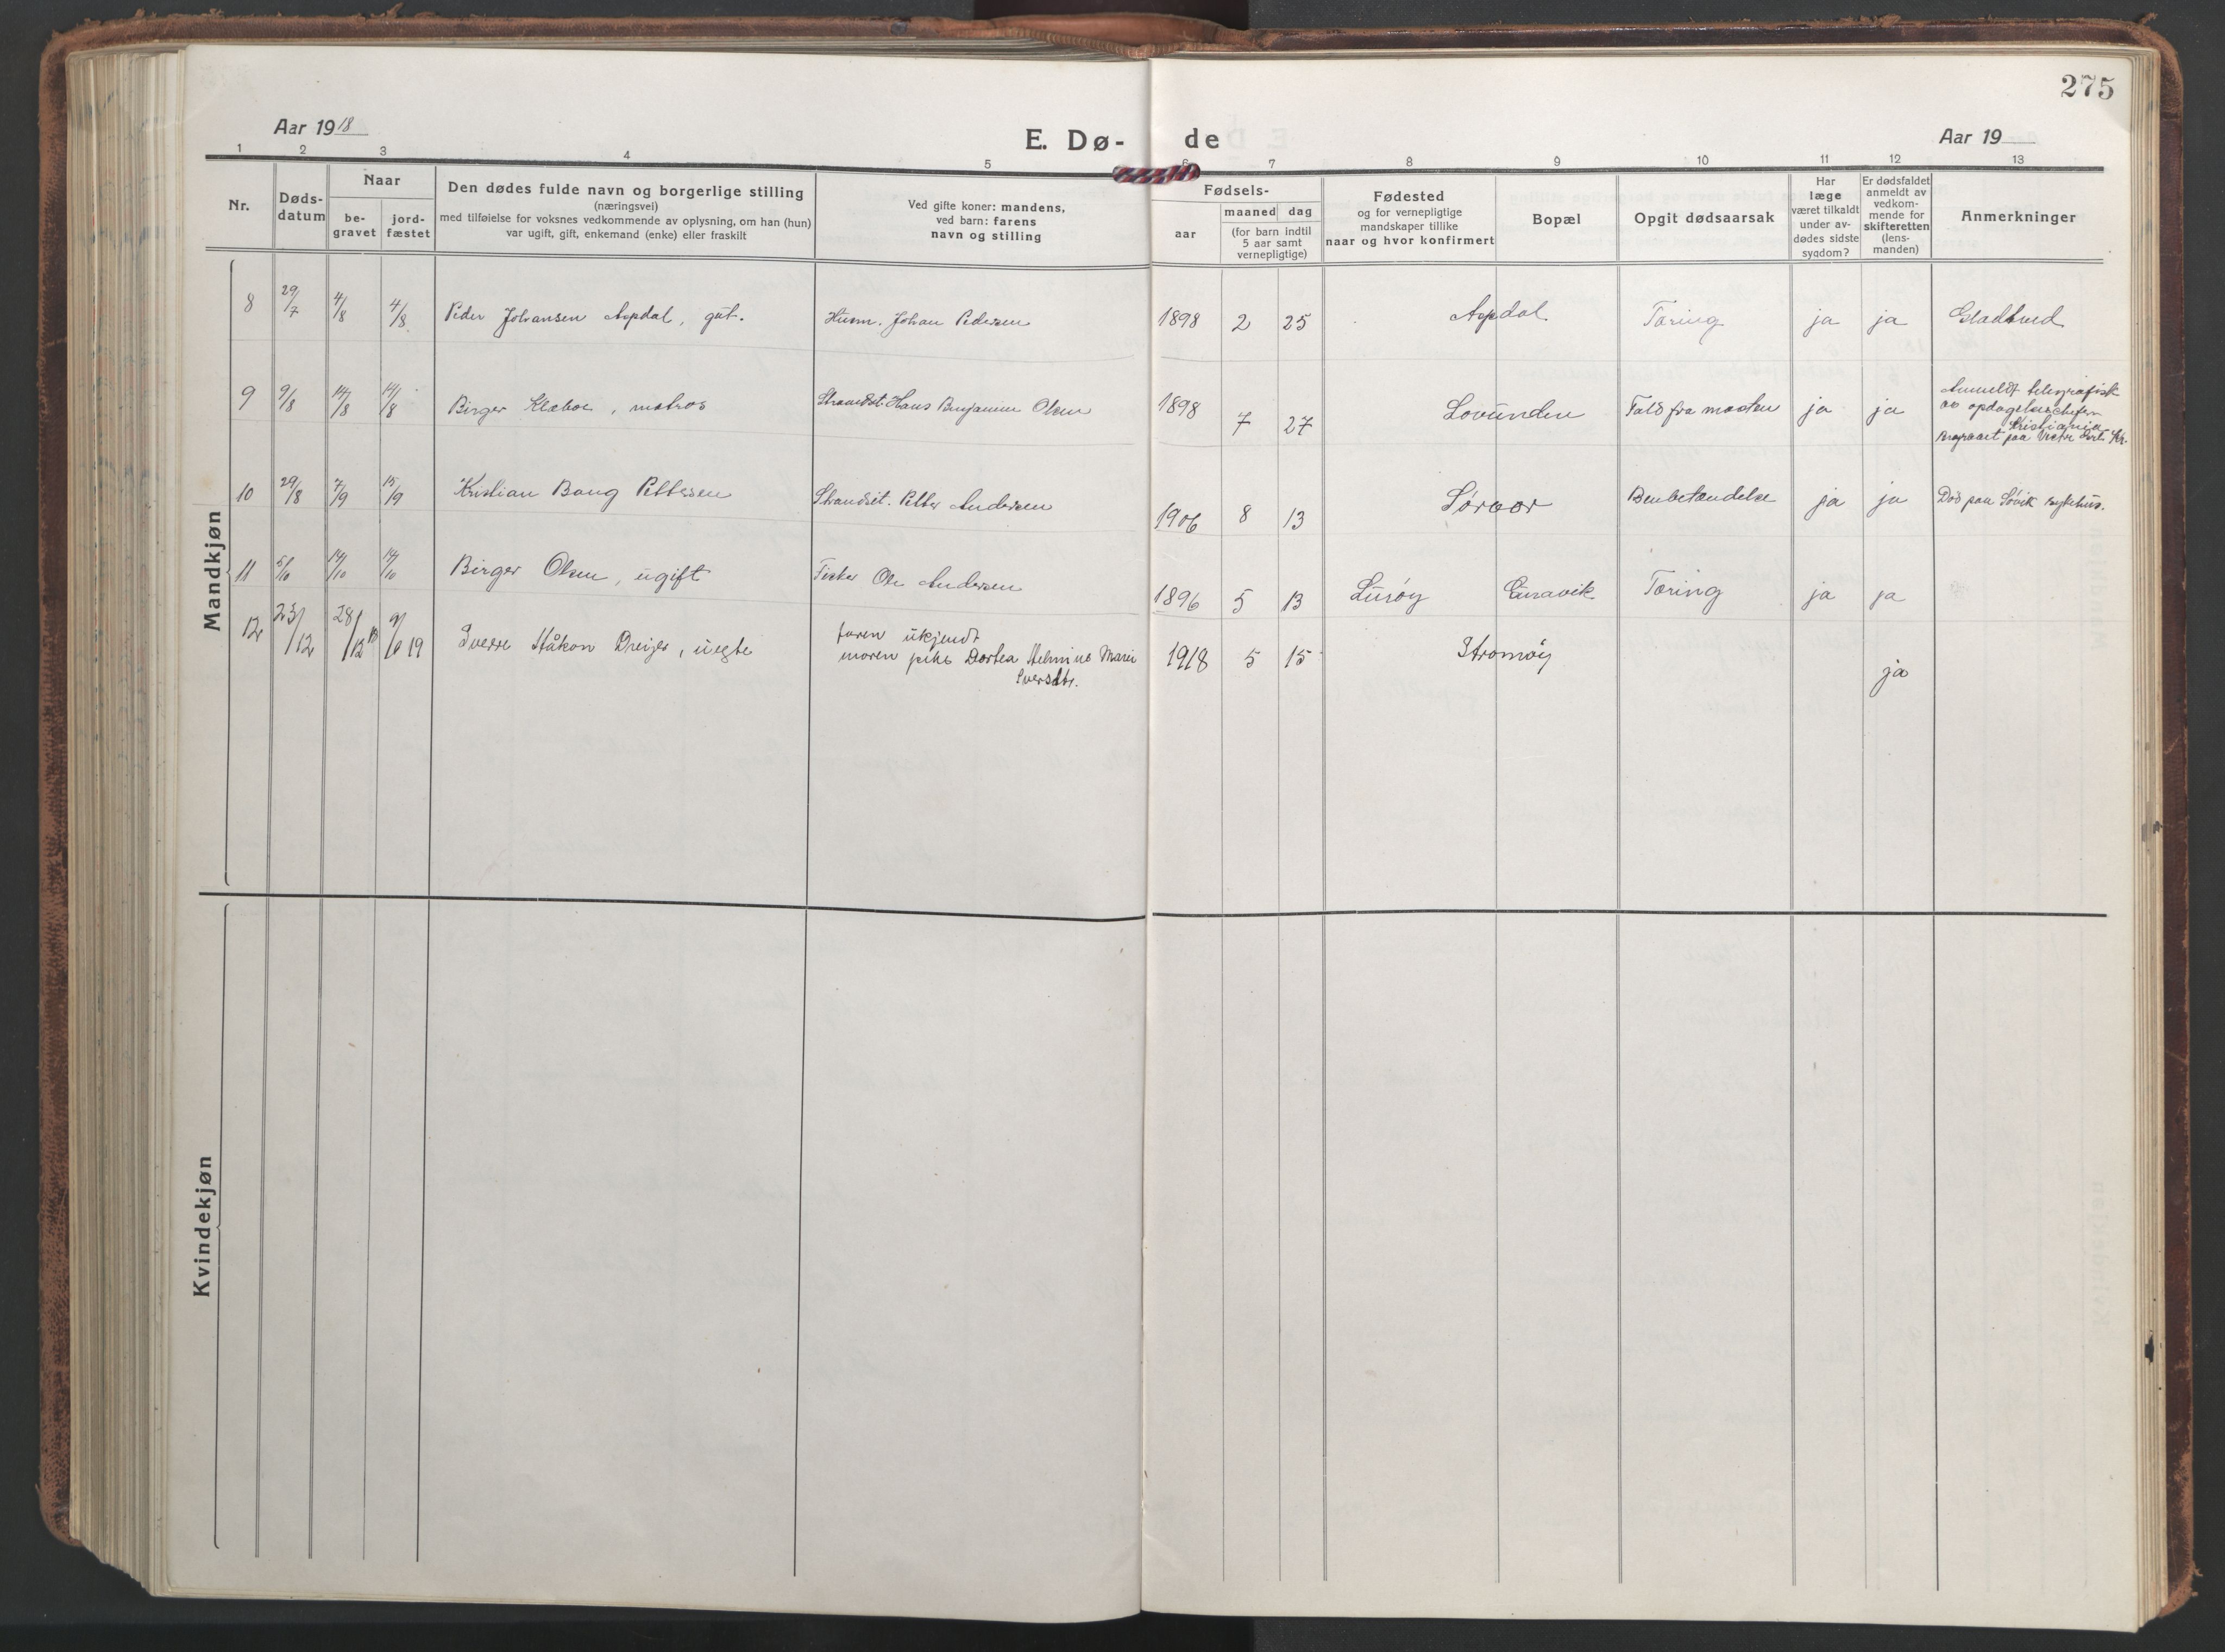 275
Aar 1918
E. Dø-
de
Aar 19
1 2 3 4 5 6 7 8 9 10 11 12 13
Nr.
Døds-
datum
Naar
be-
gravet
jord-
fæstet
Den dødes fulde navn og borgerlige stilling
(næringsvei)
med tilføielse for voksnes vedkommende av oplysning, om han (hun)
var ugift, gift, enkemand (enke) eller fraskilt
Ved gifte koner: mandens,
ved barn: farens
navn og stilling
Fødsels-
aar
maaned dag
(for barn indtil
5 aar samt
vernepligtige)
Fødested
og for vernepligtige
mandskaper tillike
naar og hvor konfirmert
Bopæl
Opgit dødsaarsak
Har
læge
været tilkaldt
under av-
dødes sidste
sygdom?
Er dødsfaldet
anmeldt av
vedkom-
mende for
skifteretten
(lens-
manden)
Anmerkninger
Mandkjøn
8 29/7 4/8 4/8 Peder Johansen Aspdal, gut. Husm. Johan Pedersen 1898 2 25 Aspdal Tæring ja ja
9 9/8 14/8 14/8 Birger Klæboe, matros Strandst. Hans Benjamin Olsen 1898 7 27 Lovunden Fald fra masten ja ja Anmeldt telegrafisk
av opdagelseschefen
Kristiania
10 29/8 7/9 15/9 Kristian Bang Pettersen Strandsit. Petter Andersen 1906 8 13 Sørvær Benbetændelse ja ja Død paa Søvik sykehus.
11 5/10 14/10 14/10 Birger Olsen, ugift Fisker Ole Andersen 1896 5 13 Lurøy Tæring ja ja
12 23/12 28/12 18 19 Sverre Håkon Dreyer, uegte faren ukjendt
moren pike Dortea Helmine Marie
Sversdtr.
1918 5 15 Stromøy ja
Kvindekjøn